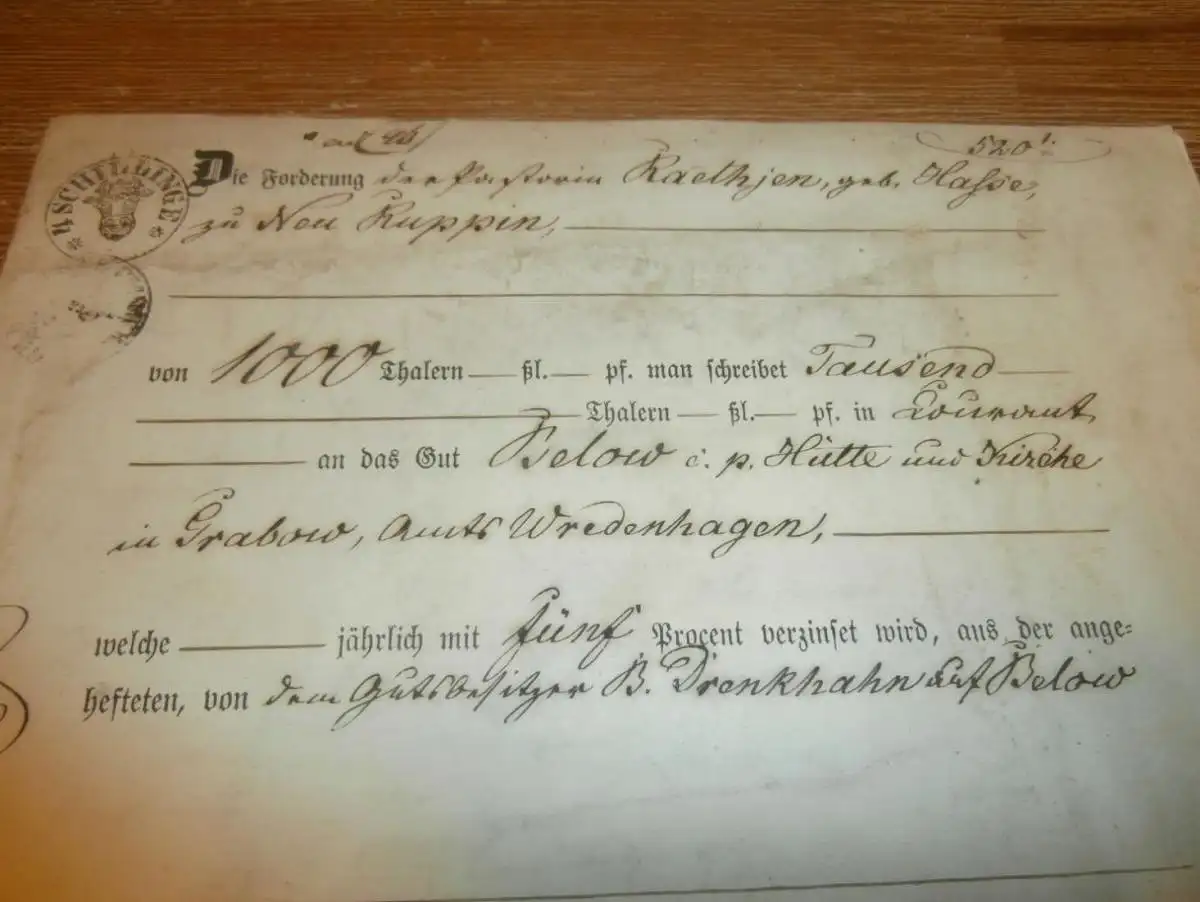 520
4 SCHILLINGE
Die Forderung der Pastorin Raethjen, geb. Hasse,
zu Neu Ruppin,
von 1000 Thalern ßl. pf. man schreibet Tausend
Thalern ßl. pf. in Courant
an das Gut Below c. p. Hütte und Kirche
in Grabow, Amts Wredenhagen,
welche jährlich mit fünf Procent verzinset wird, aus der ange=
hefteten, von dem Gutsbesitzer B. Drenkhahn auf Below